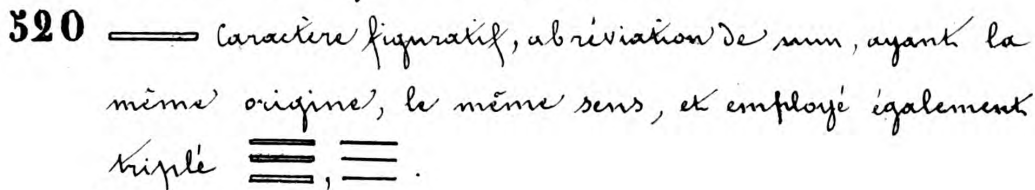 520 Caractère figuratif, abréviation de mun, ayant la
même origine, le même sens, et employé également
triplé , .